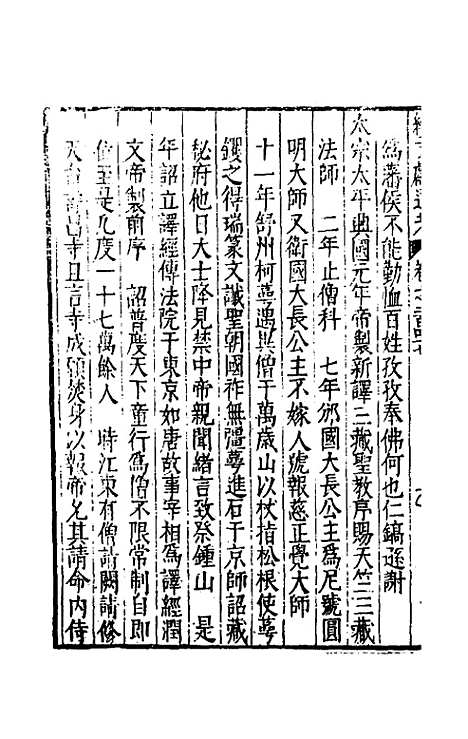 為藩侯不能勤恤百姓孜孜奉佛何也仁鎬遜謝
太宗太平興國元年帝製新譯三藏聖教序賜天竺三藏
法師　二年止僧科　七年邠國大長公主為尼號圓
明大師又衛國大長公主不嫁人號報慈正覺大師
十一年舒州柯萼遇異僧于萬歲山以杖指松根使萼
钁之得瑞篆文讖聖朝國祚無疆萼進石于京師詔藏
秘府他日大士降見禁中帝親聞緒言致祭鍾山　是
年詔立譯經傳法院于東京如唐故事宰相為譯經潤
文帝製前序　詔普度天下童行為僧不限常制自即
位至是凡度一十七萬餘人　時江東有僧詣闕請修
天台壽昌寺且言寺成願焚身以報帝允其請命內侍